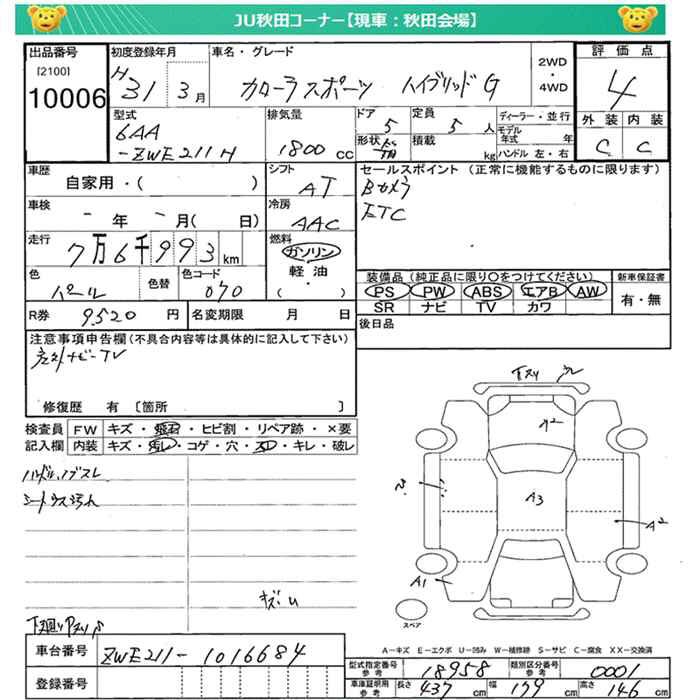 JU秋田コーナー【現車：秋田会場】
出品番号
[2100]
10006
初度登録年月
H31 3月
車名・グレード
カローラスポーツ ハイブリッドG
2WD
・
4WD
評価点
4
型式
6AA
-ZWE211H
排気量
1800 cc
ドア
5
形状
定員
5 人
積載
kg
ディーラー・並行
モデル年式 年
ハンドル 左・右
外装 内装
C C
車歴
自家用・( )
シフト
AT
セールスポイント (正常に機能するものに限ります)
Bカメラ
ETC
車検
- 年 - 月( 日)
冷房
AAC
走行
7万6千993 km
燃料
ガソリン
軽油
・
( )
色
パール
色替
色コード
070
装備品(純正品に限り○をつけてください)
PS PW ABS エアB AW
SR ナビ TV カワ
新車保証書
有・無
R券 9520 円
名変期限 月 日
後日品
注意事項申告欄(不具合内容等は具体的に記入して下さい)
社外ナビーTV
修復歴 有 〔箇所 〕
検査員記入欄
FW キズ・飛石・ヒビ割・リペア跡・×要
内装 キズ・汚レ・コゲ・穴・スレ・キレ・破レ
ハンドル、ノブスレ
シートウス汚れ
キズ・U
下廻りサビ
A2
A3
A2
A1
スペア
A－キズ E－エクボ U－凹み W－補修跡 S－サビ C－腐食 XX－交換済
車台番号 ZWE211-1016684
登録番号
型式指定番号 参考 18958
類別区分番号 参考 0001
車庫証明用 参考 長さ 437 cm 幅 179 cm 高さ 146 cm